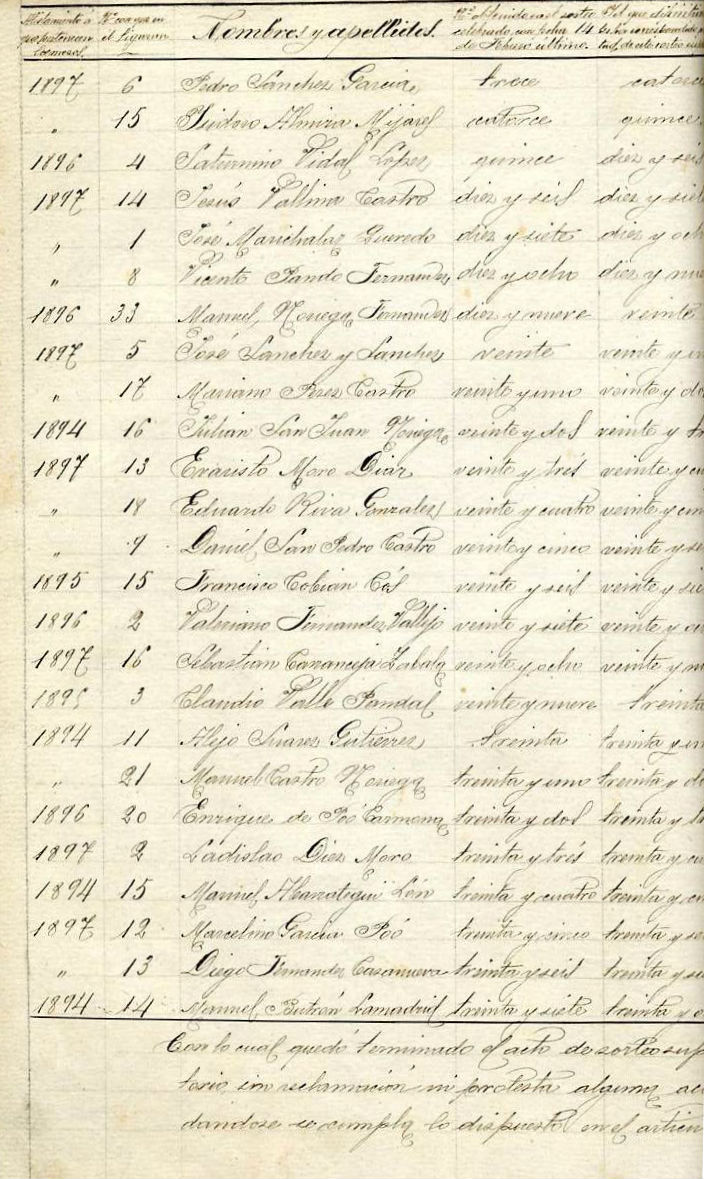 Alistamiento á Nº con que en Nombres y apellidos. Nº obtenido en el sorteo Nº que
que pertenecen él figuran celebrado con fecha 14
los mozos. de Febrero último.
1897 6 Pedro Sanchez Garcia trece catorce
" 15 Isidoro Almiza Mijares catorce quince
1896 4 Saturnino Vidal Lopez quince diez y seis
1897 14 Jesús Vallina Castro diez y seis diez y siete
" 1 José Marichalar Queredo diez y siete diez y och
" 8 Vicente Pando Fernandez diez y ocho diez y nue
1896 33 Manuel Noriega Fernandez diez y nueve veinte
1897 5 José Sanchez y Sanchez veinte veinte y un
" 17 Mariano Perez Castro veinte y uno veinte y do
1894 16 Julian San Juan Noriega veinte y dos veinte y tr
1897 13 Evaristo Moro Diaz veinte y trés veinte y cu
" 18 Eduardo Riva Gonzalez veinte y cuatro veinte y cin
" 9 Daniel San Pedro Castro veinte y cinco veinte y se
1895 15 Francisco Cobian Cós veinte y seis veinte y sie
1896 2 Valeriano Fernandez Vallejo veinte y siete veinte y oc
1897 16 Sebastian Carranceja Zabala veinte y ocho veinte y nu
1895 3 Claudio Valle Pandal veinte y nueve treinta
1894 11 Alejo Suarez Gutierrez treinta treinta y un
" 21 Manuel Castro Noriega treinta y uno treinta y do
1896 20 Enrique de Póo Carmona treinta y dos treinta y tr
1897 2 Ladislao Diez Moro treinta y trés treinta y cu
1894 15 Manuel Abarrategui Lón treinta y cuatro treinta y cin
1897 12 Marcelino Garcia Póó treinta y cinco treinta y se
" 13 Diego Fernandez Casanueva treinta y seis treinta y si
1894 14 Manuel Butrón Lamadrid treinta y siete treinta y o
Con lo cual quedó terminado el acto de sorteo sup
torio, sin reclamación ni protesta alguna, ac
dandose se cumpla lo dispuesto en el artícu